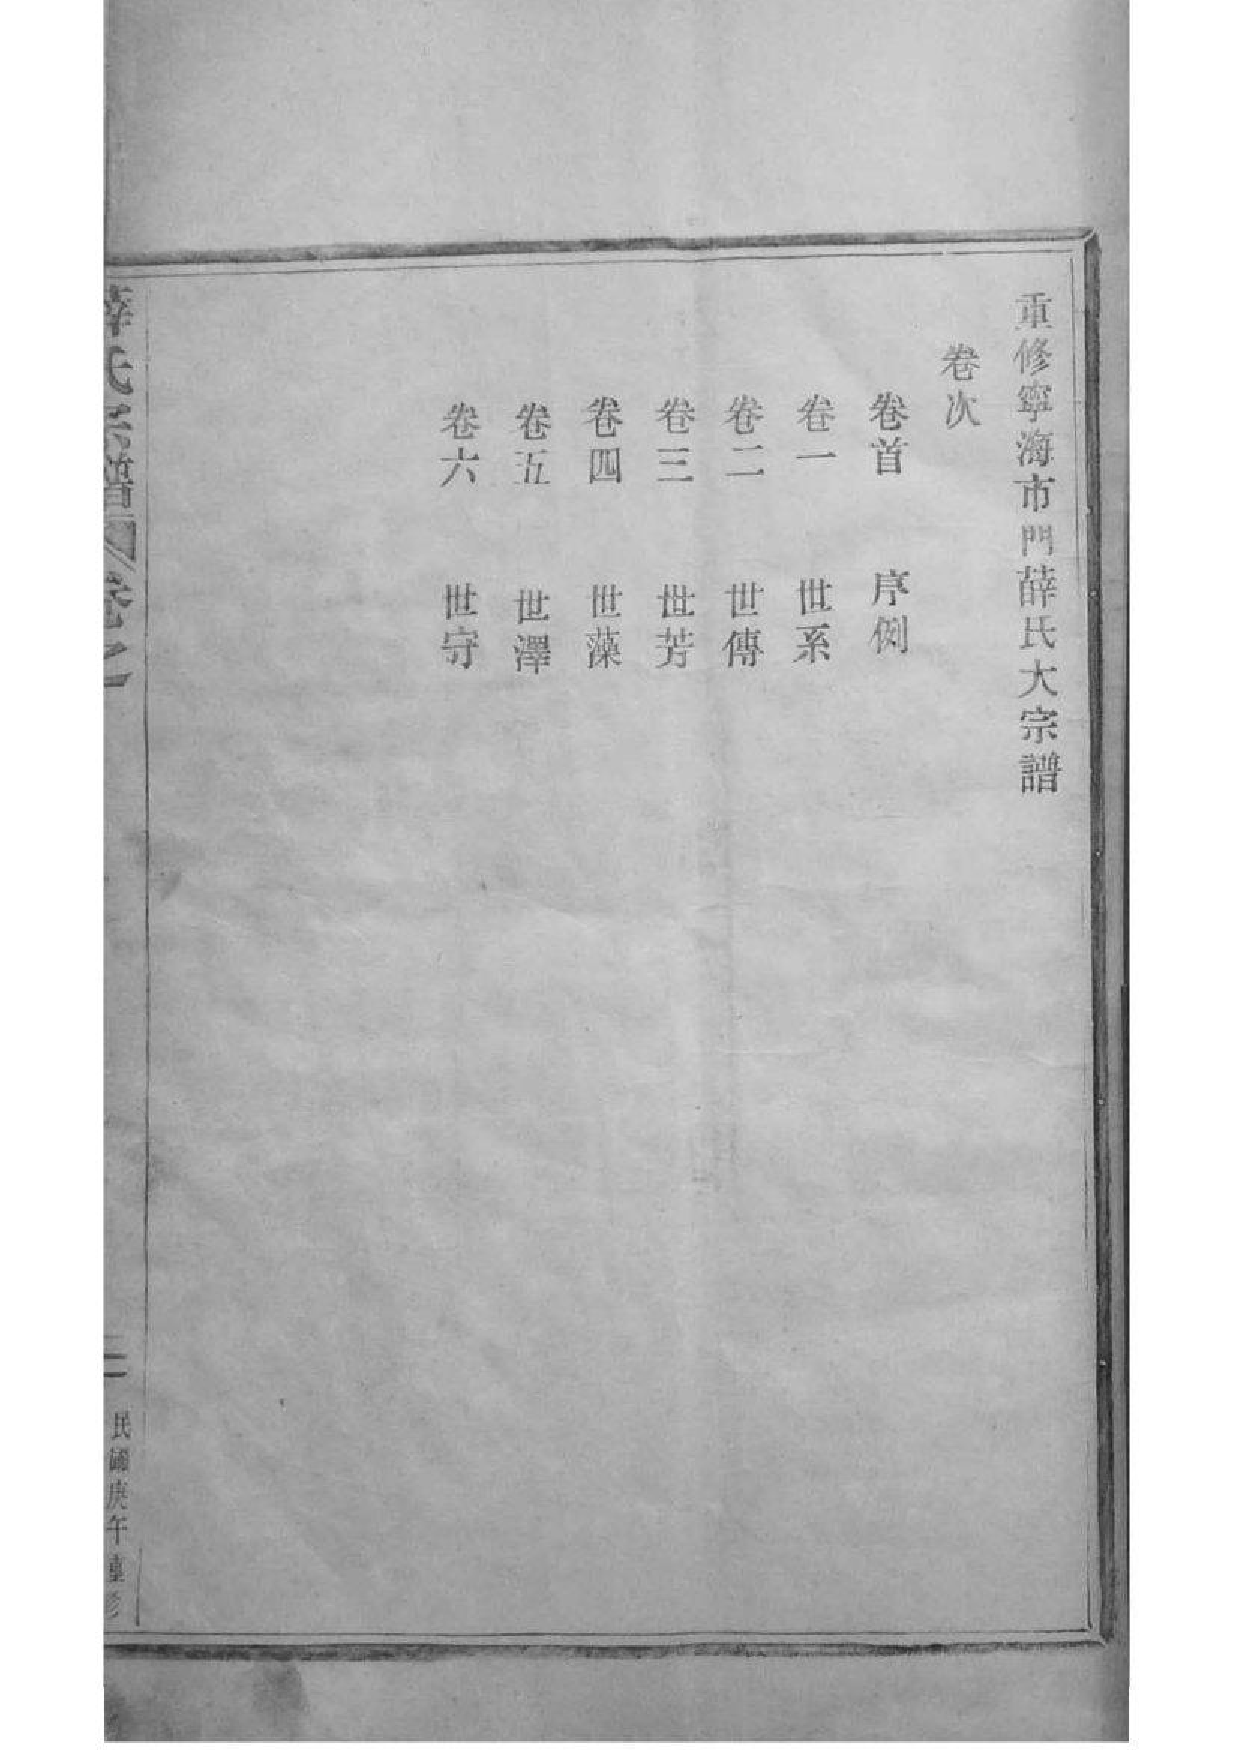 重修寧海市門薛氏大宗譜
卷次
卷首　序例
卷一　世系
卷二　世傳
卷三　世芳
卷四　世藻
卷五　世澤
卷六　世守
薛氏宗譜　卷之一
二
民國庚午重修